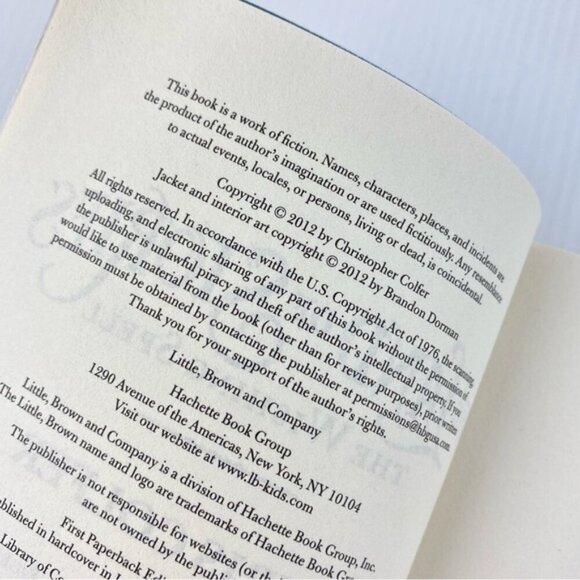 This book is a work of fiction. Names, characters, places, and incidents are
the product of the author's imagination or are used fictitiously. Any resemblance
to actual events, locales, or persons, living or dead, is coincidental.
Copyright © 2012 by Christopher Colfer
Jacket and interior art copyright © 2012 by Brandon Dorman
All rights reserved. In accordance with the U.S. Copyright Act of 1976, the scanning,
uploading, and electronic sharing of any part of this book without the permission of
the publisher is unlawful piracy and theft of the author's intellectual property. If you
would like to use material from the book (other than for review purposes), prior written
permission must be obtained by contacting the publisher at permissions@hbgusa.com.
Thank you for your support of the author's rights.
Little, Brown and Company
Hachette Book Group
1290 Avenue of the Americas, New York, NY 10104
Visit our website at www.lb-kids.com
Little, Brown and Company is a division of Hachette Book Group, Inc.
The Little, Brown name and logo are trademarks of Hachette Book Group
The publisher is not responsible for websites (or
are not owned by the
First Paperback
published in hardcover in
Library of